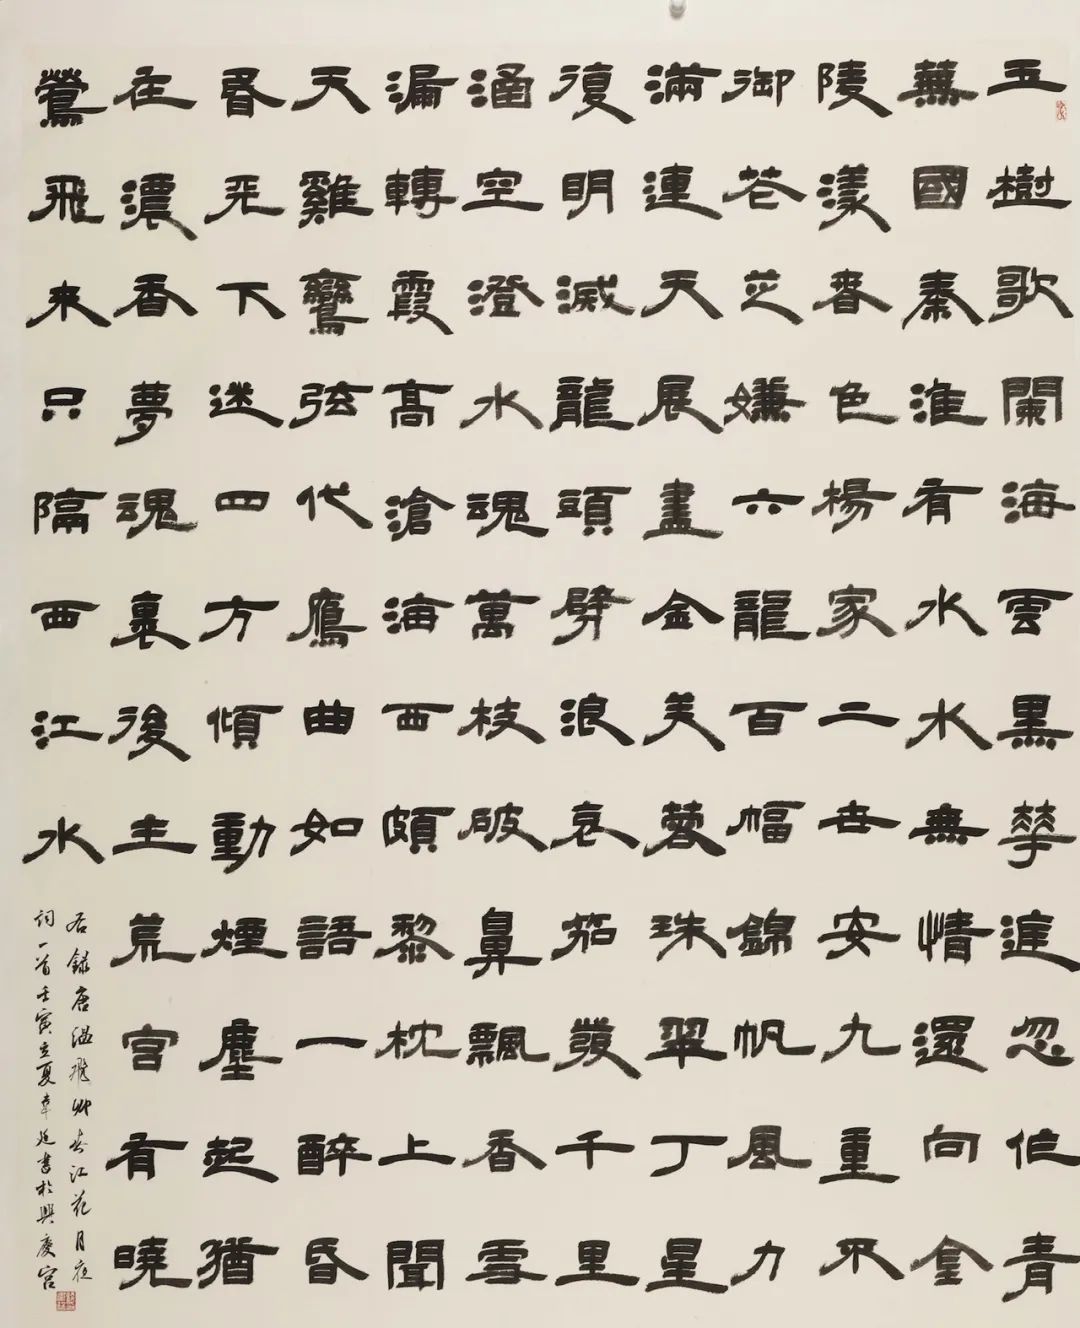 玉樹歌闌海雲黑華庭忽作青
蕪國秦淮有水水無情還向金
陵漾春色楊家二世安九重不
御花芝嫌六龍百幅錦帆風力
滿連天展盡金芙蓉珠翠丁星
復明滅龍頭劈浪哀笳發千里
涵空澄水魂萬枝破鼻飄香雪
漏轉霞高滄海西頗黎枕上聞
天雞鸞弦代鴈曲如語一醉昏
昏天下迷四方傾動煙塵起猶
在濃香夢魂裏後主荒宮有曉
鶯飛來只隔西江水
右錄唐溫飛卿春江花月夜
詞一首壬寅立夏書於興慶宮